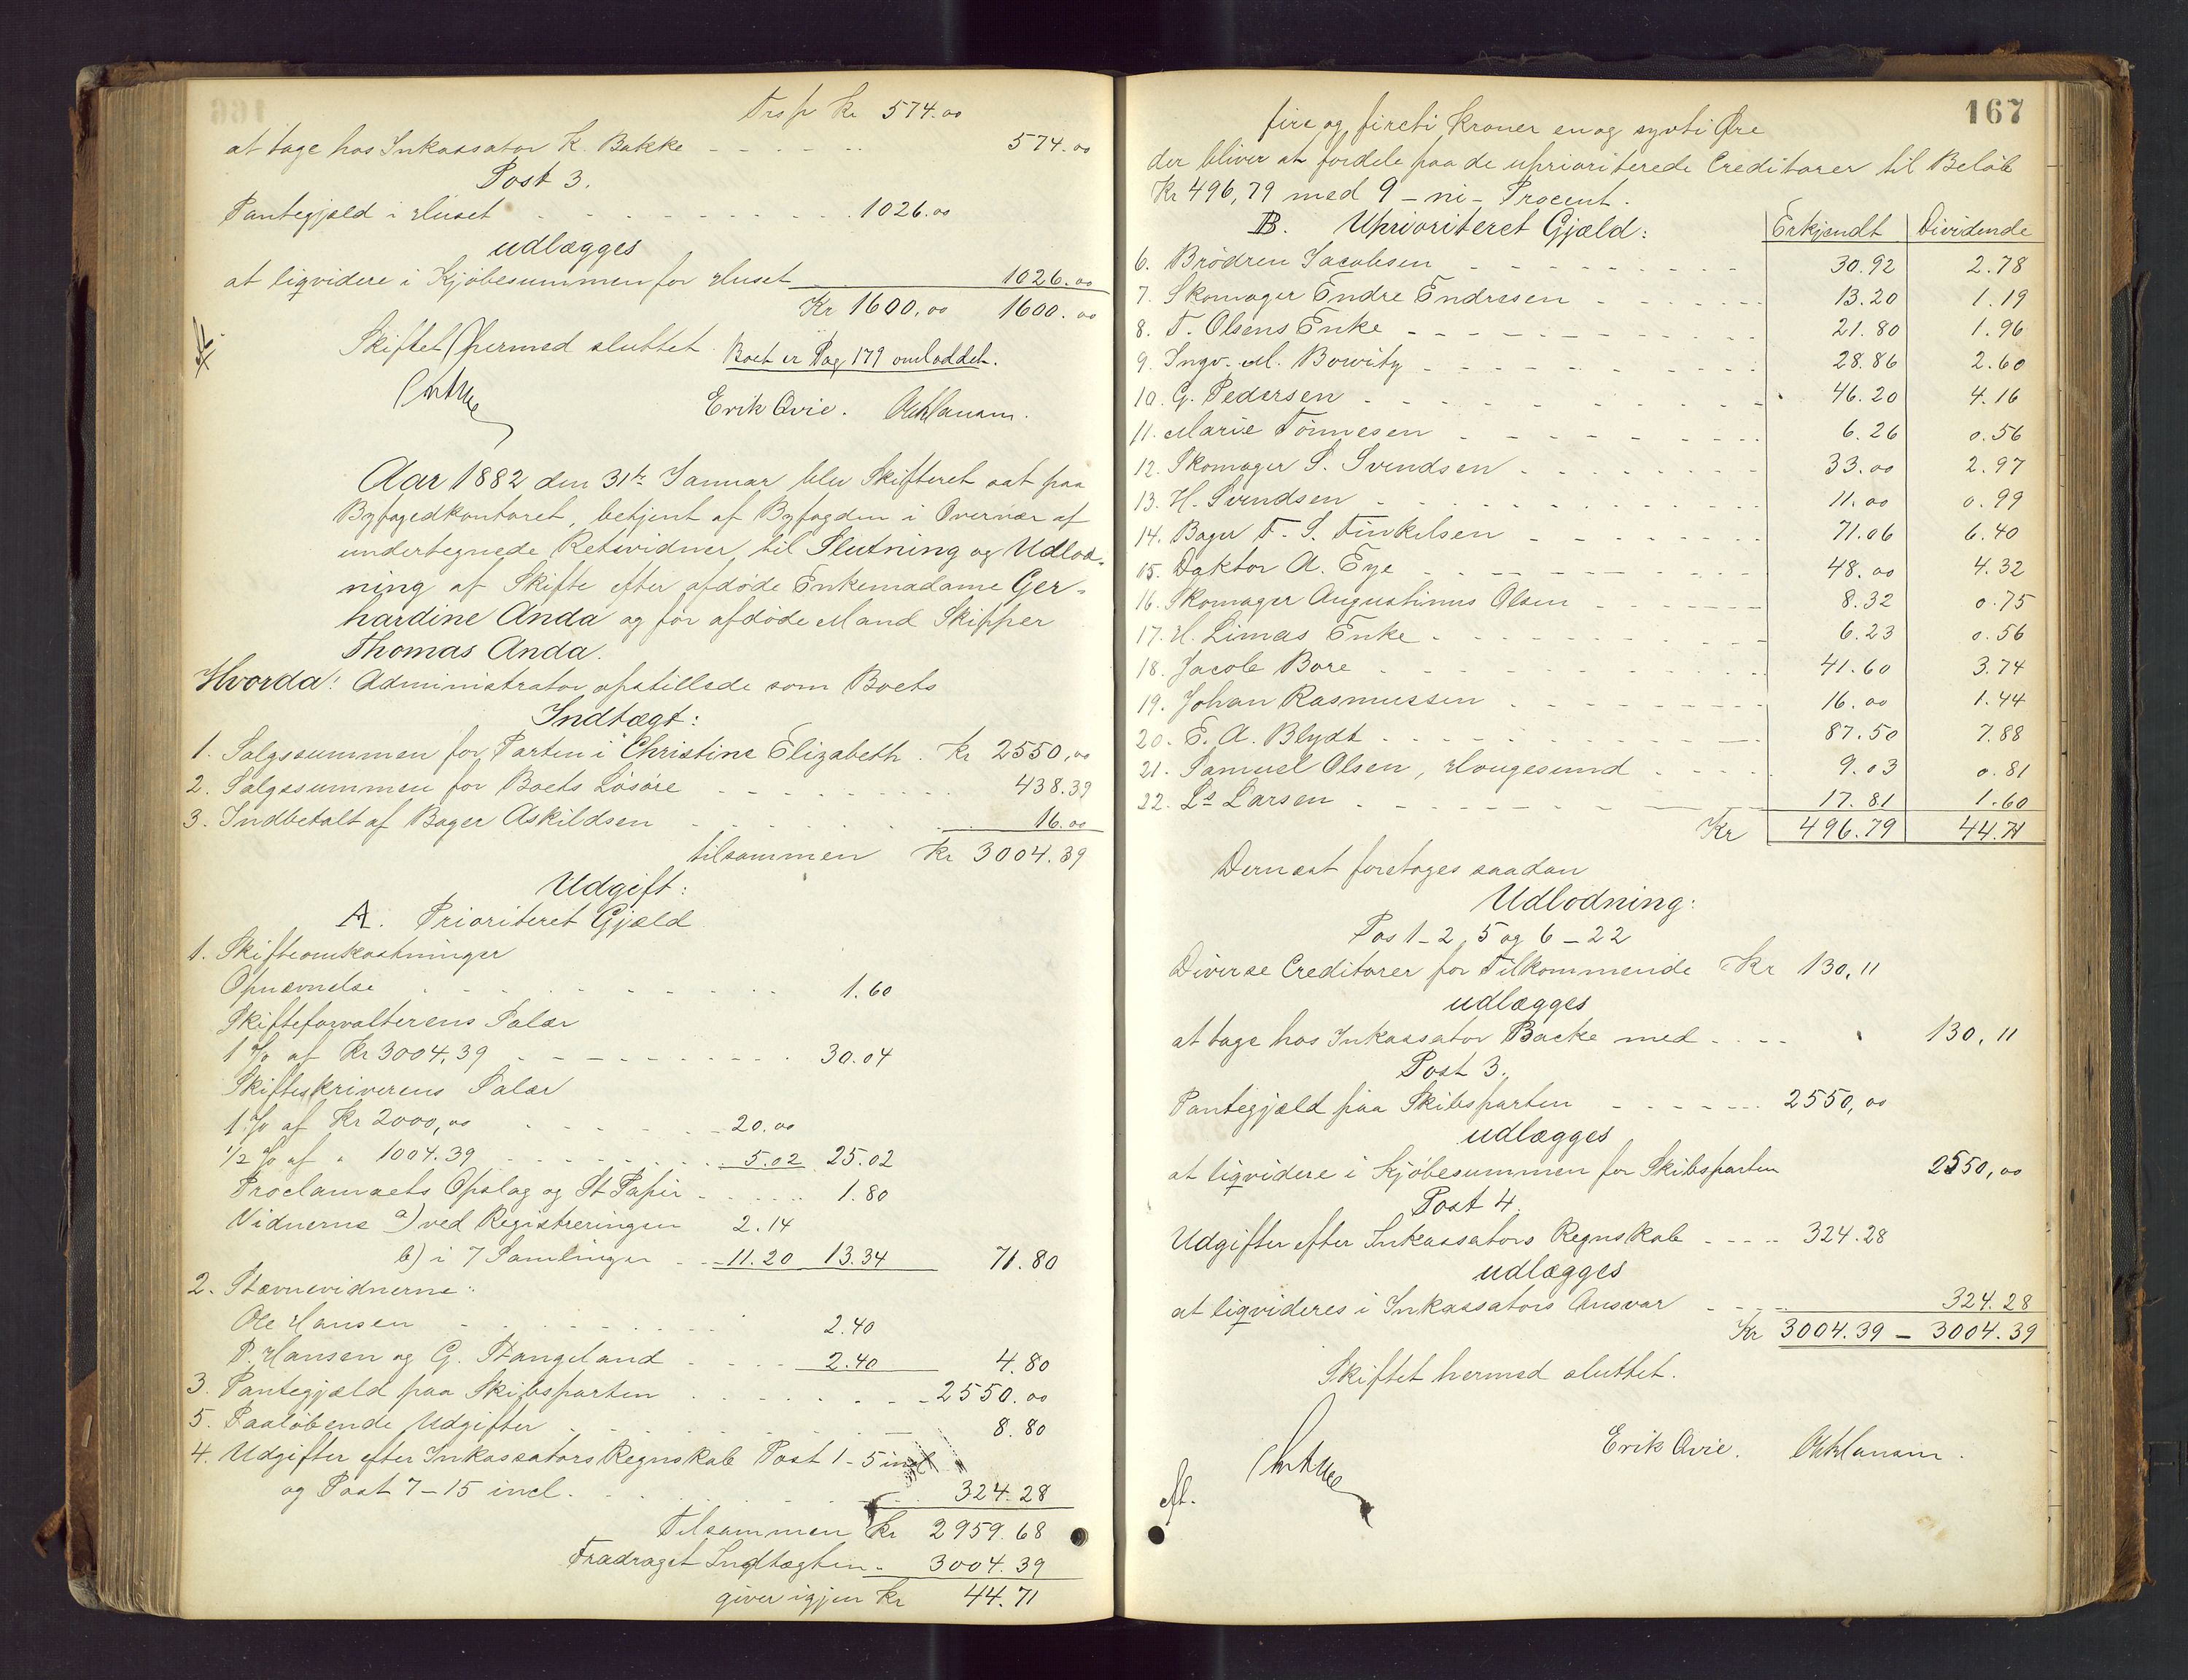 Trsp Kr 574.00
at tage hos Inkassator K. Bakke 574.00
Post 3.
Pantegjæld i Huset 1026.00
udlægges
at liqvidere i Kjöbesummen for Huset 1026.00
Kr 1600,00 1600.00
Skiftet hermed sluttet. Boet er Pag 179 omloddet.
Erik Qvie.
Aar 1882 den 31te Januar blev Skifteret sat paa
Byfogedkontoret, betjent af Byfogden i Overvær af
undertegnede Retsvidner, til Slutning og Udlod-
ning af Skifte efter afdöde Enkemadame Ger-
hardine Anda og för afdöde Mand Skipper
Thomas Anda.
Hvorda! Administrator opstillede som Boets
Indtægt:
1. Salgssummen for Parten i Christine Elizabeth. Kr 2550,00
2. Salgssummen for Boets Lösöre 438.39
3. Indbetalt af Bager Askildsen 16.00
tilsammen Kr 3004.39
Udgift:
A. Prioriteret Gjæld
1. Skifteomkostninger
Opnævnelse 1.60
Skifteforvalterens Salær
1 % af Kr 3004,39 30.04
Skifteskriverens Salær
1 % af Kr 2000,00 20.00
1/2 % af " 1004.39 5.02 25.02
Proclamaets Opslag og St Papir 1.80
Vidnerne a) ved Registreringen 2.14
b) i 7 Samlinger 11.20 13.34 71.80
2. Stævnevidnerne:
Ole Hansen 2.40
P. Hansen og G. Stangeland 2.40 4.80
3. Pantegjæld paa Skibsparten 2550.00
5. Paalöbende Udgifter 8.80
4. Udgifter efter Inkassators Regnskab Post 1-5 incl
og Post 7-15 incl. 324.28
Tilsammen Kr 2959.68
Fradraget Indtægten 3004.39
giver igjen Kr 44.71
167
fire og fireti Kroner en og syvti Øre
der bliver at fordele paa de uprioriterede Creditorer til Belöb
Kr 496,79 med 9 - ni - Procent.
B. Uprioriteret Gjæld: Erkjendt Dividende
6. Brödrene Jacobsen 30.92 2.78
7. Skomager Endre Endresen 13.20 1.19
8. T. Olsens Enke 21.80 1.96
9. Ingv. M. Bowitz 28.86 2.60
10. G. Pedersen 46.20 4.16
11. Marie Tönnesen 6.26 0.56
12. Skomager S. Svendsen 33.00 2.97
13. H. Svendsen 11.00 0.99
14. Bager T. S. Tinkelsen 71.06 6.40
15. Doktor A. Eye 48.00 4.32
16. Skomager Augustinus Olsen 8.32 0.75
17. H. Limas Enke 6.23 0.56
18. Jacob Bore 41.60 3.74
19. Johan Rasmussen 16.00 1.44
20. E. A. Blydt 87.50 7.88
21. Samuel Olsen, Hougesund 9.03 0.81
22. Ls Larsen 17.81 1.60
Kr 496.79 44.71
Dernæst foretoges saadan
Udlodning:
Pos 1-2, 5 og 6-22
Diverse Creditorer for Tilkommende Kr 130,11
udlægges
at tage hos Inkassator Backe med 130,11
Post 3.
Pantegjæld paa Skibsparten 2550,00
udlægges
at liqvidere i Kjöbesummen for Skibsparten 2550,00
Post 4.
Udgifter efter Inkassators Regnskab 324.28
udlægges
at liqvideres i Inkassators Ansvar 324.28
Kr 3004.39 - 3004.39
Skiftet hermed sluttet.
Erik Qvie.